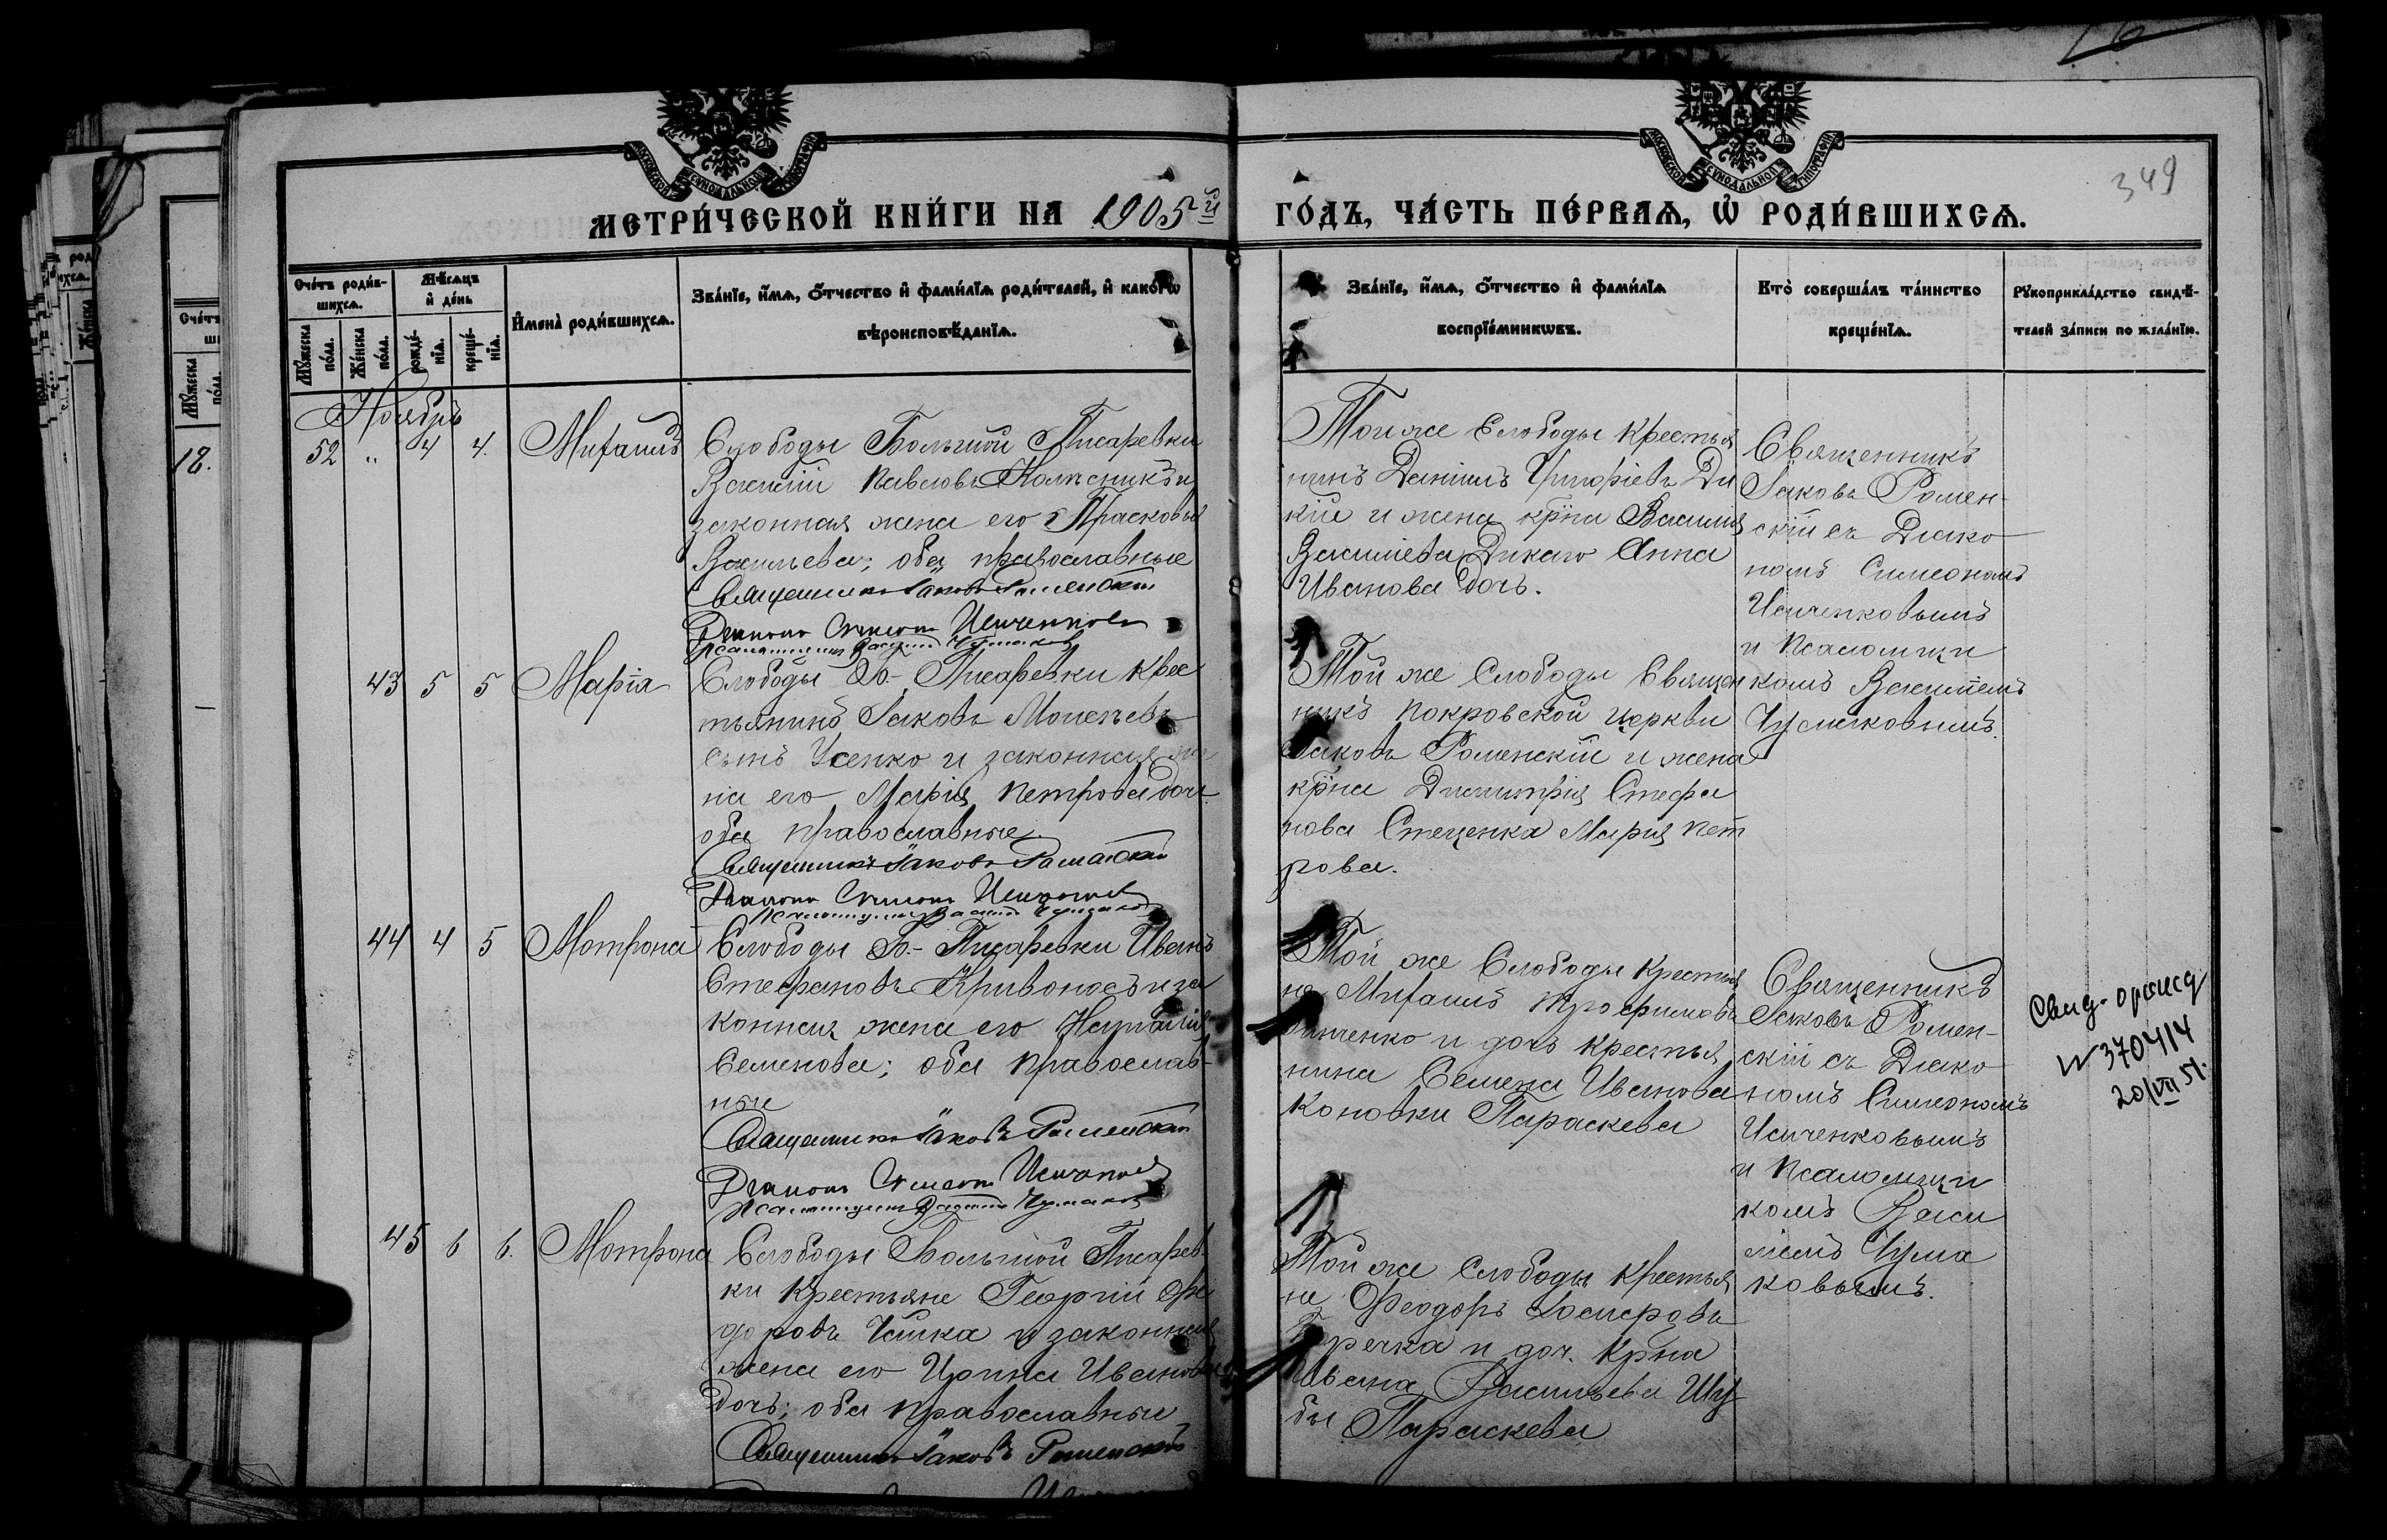 349
МЕТРИ́ЧЕСКОЙ КНИ́ГИ НА 1905й ГО́ДЪ, ЧА́СТЬ ПЕ́РВАѦ, Ѡ҆ РОДИ́ВШИХСѦ.
Сче́тъ роди́в-
шихсѧ.
Мꙋ́жеска по́ла.
Же́нска по́ла.
Мѣ́сѧцъ
и҆ де́нь
рожде́-
нїѧ.
креще́-
нїѧ.
И҆мена̀ роди́вшихсѧ.
Зва́нїе, и҆́мѧ, ѻ҆́тчество и҆ фами́лїѧ роди́телей, и҆ како́гѡ
вѣроисповѣ́данїѧ.
Зва́нїе, и҆́мѧ, ѻ҆́тчество и҆ фами́лїѧ
воспрїе́мникѡвъ.
Кто̀ соверша́лъ та́инство
креще́нїѧ.
Рꙋкоприкла́дство свидѣ́-
телей за́писи по жела́нїю.
Ноябрь
52 " 4 4. Михаилъ
Слободы Большой Писаревки
Василій Павловъ Колесникъ и
законная жена его Прасковья
Васильева; оба православные
Священникъ Іаковъ Роменскій
Діаконъ Симеонъ Исиченковъ
Псаломщикъ Василій Чумаковъ
Той же Слободы Крестья
нинъ Даніилъ Ди
кій и жена кр-на Василія
Васильева Дикаго Анна
Иванова дочь.
Священникъ
Іаковъ Ромен-
скій съ Діако
номъ Симеономъ
Исиченковымъ
и Псаломщи
комъ Василіемъ
Чумаковымъ.
43 5 5 Марія
Слободы Б.- Писаревки Крес
тьянинъ Іаковъ Моисеевъ
сынъ Усенко и законная же
на его Марія Петрова дочь
оба православные.
Священникъ Іаковъ Роменскій
Діаконъ Симеонъ Исиченковъ
Псаломщикъ Василій Чумаковъ
Той же Слободы Священ
никъ Покровской церкви
Іаковъ Роменскій и жена
кр-на Димитрія Стефа
нова Стеценка Марія Пет
рова.
44 4 5 Мотрона
Слободы Б.- Писаревки Иванъ
Стефановъ Кривоносъ и за
конная жена его Наталія
Семенова; оба православ-
ные
Священникъ Іаковъ Роменскій
Діаконъ Симеонъ Исиченковъ
Псаломщикъ Василій Чумаковъ
Той же Слободы Крестья
не Михаилъ Трофимовъ
и дочь крестья
нина Семена Иванова
Коновки Параскева
Священникъ
Іаковъ Ромен-
скій съ Діако
номъ Симеономъ
Исиченковымъ
и Псаломщи
комъ Васи
ліемъ Чума
ковымъ.
N 370414
20/VII 51.
45 6 6. Мотрона
Слободы Большой Писарев
ки Крестьяне Георгій Фе
доровъ Чайка и законная
жена его Ирина Иванова
дочь; оба православные
Священникъ Іаковъ Роменскій
Той же Слободы Крестья
не Феодоръ
и доч. кр-на
Ивана Васильева Шу
бы Параскева
18.